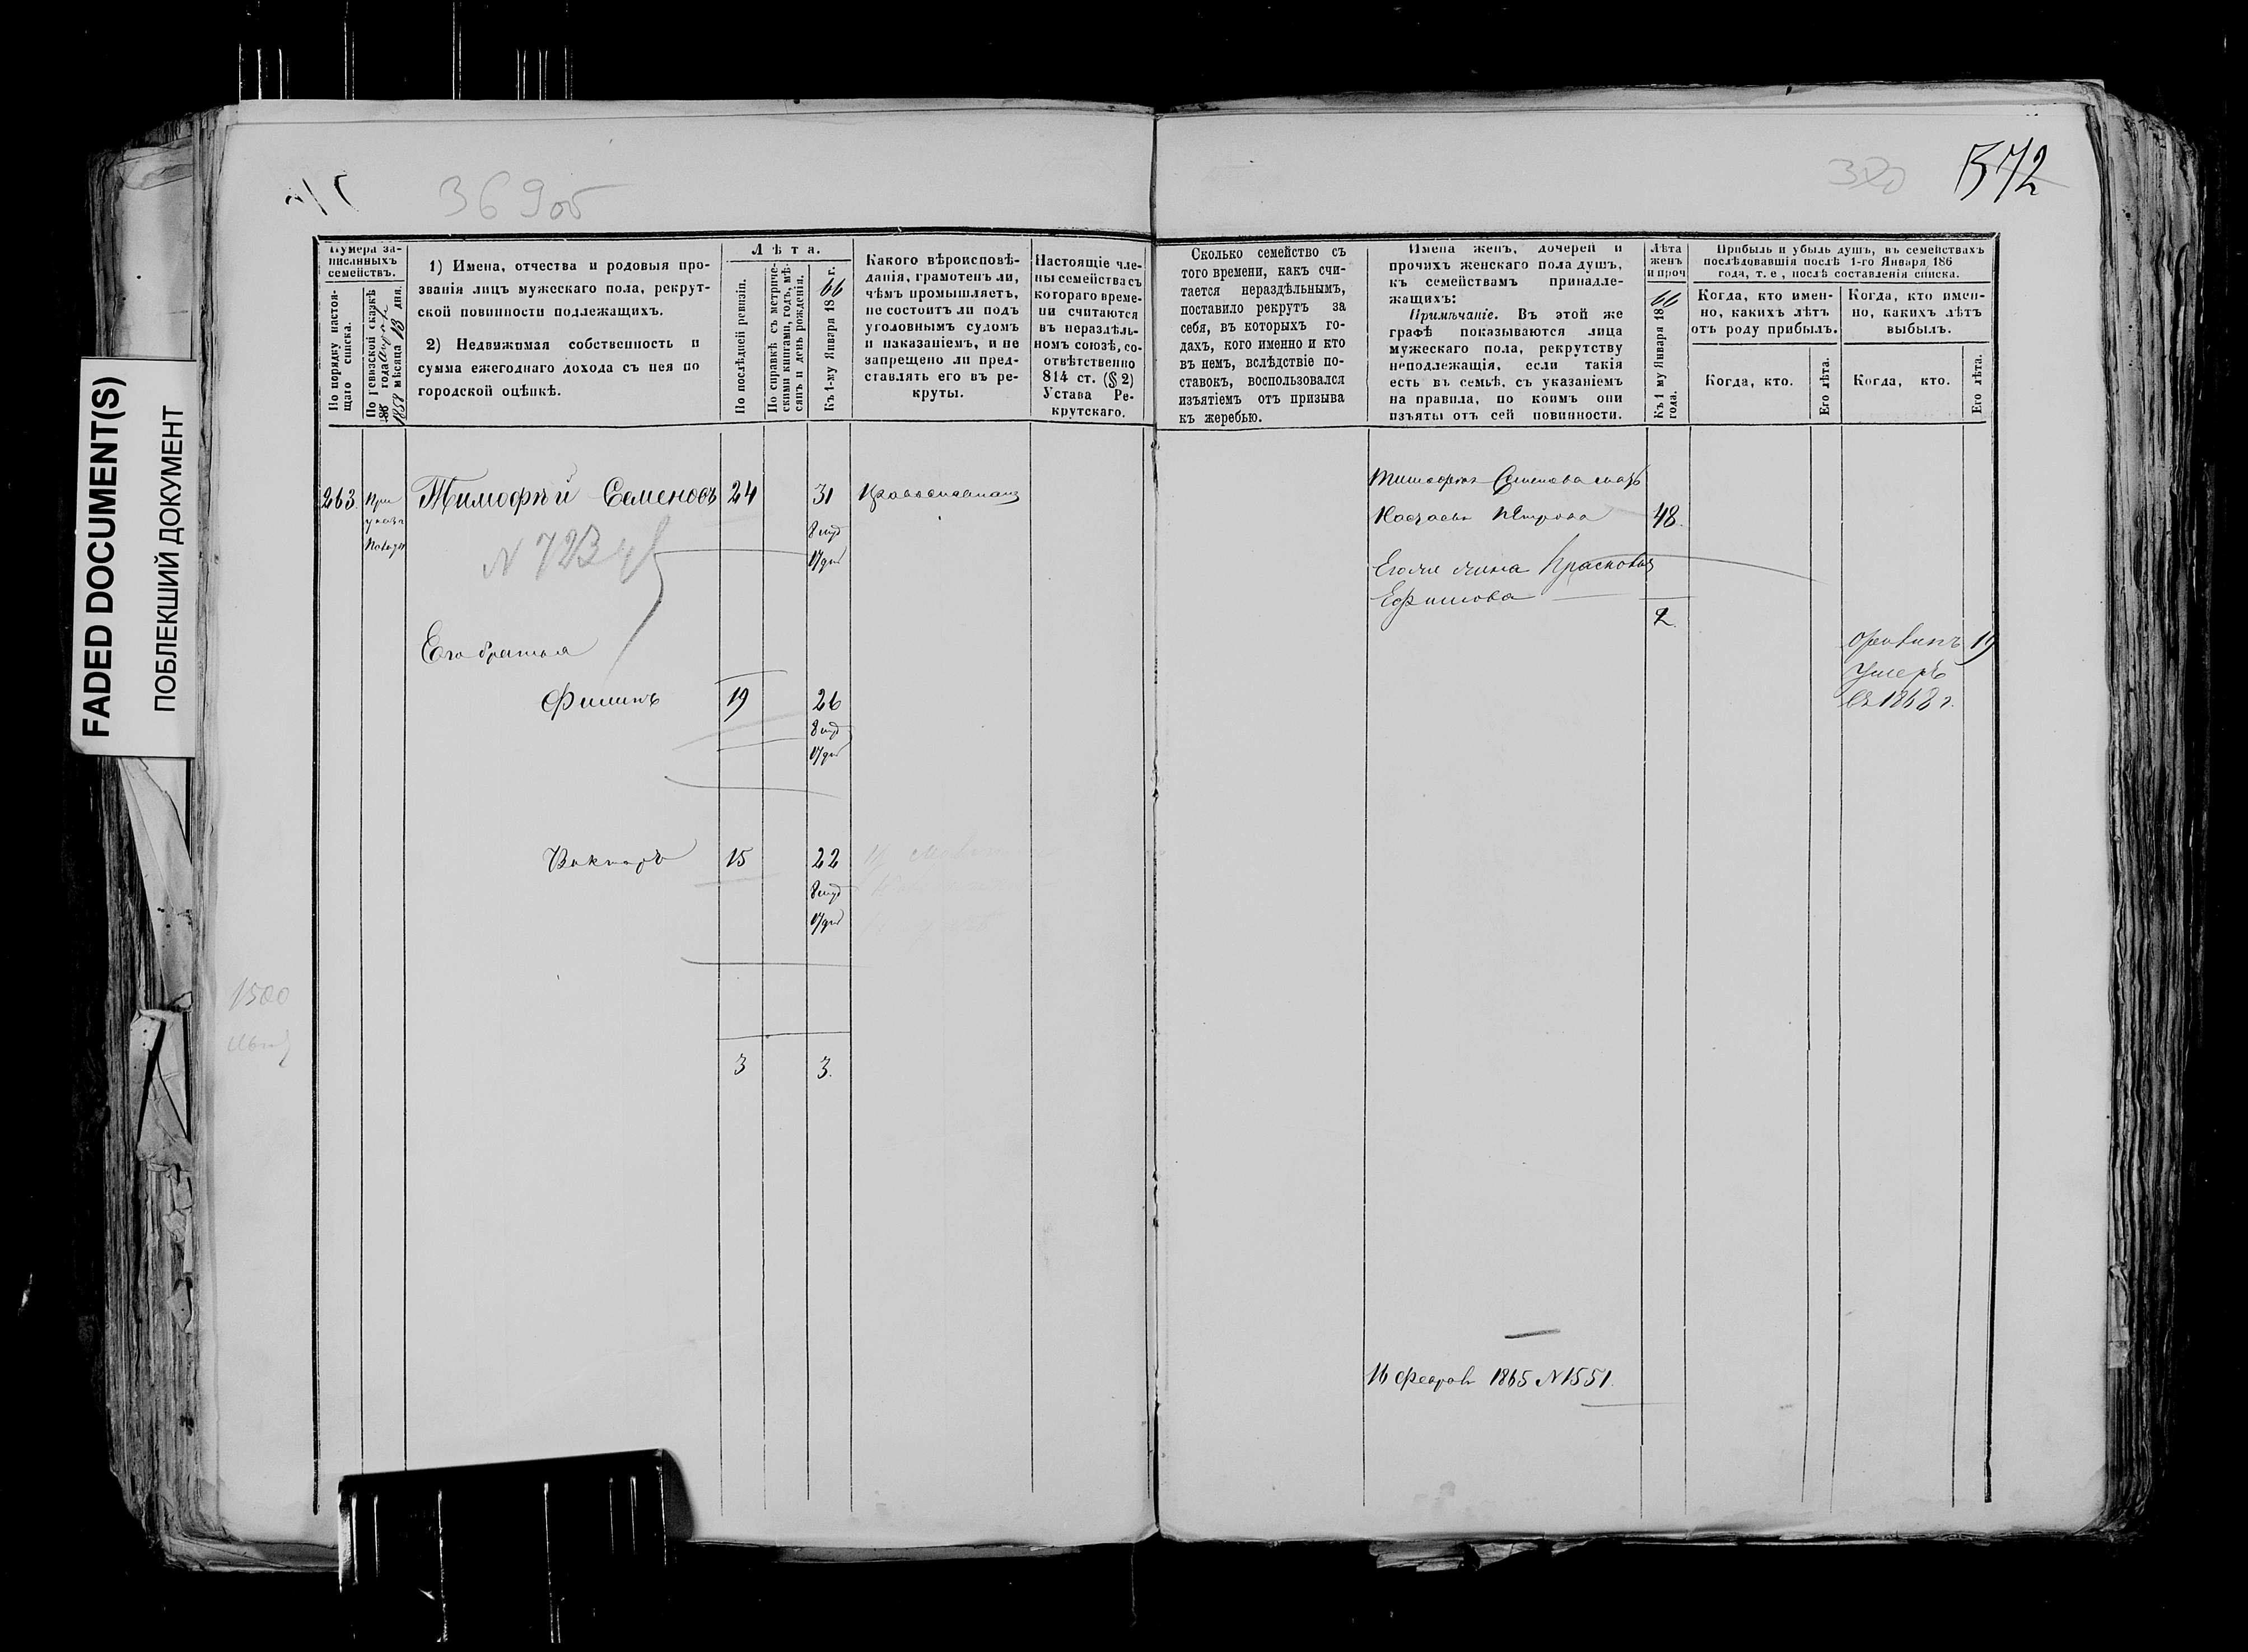 FADED DOCUMENT(S)
ПОБЛЕКШИЙ ДОКУМЕНТ
369об
Нумера за-
писанныхъ
семействъ.
По порядку настоя-
щаго списка.
По ревизской сказкѣ
186 года
1858 мѣсяца 13 дня.
1) Имена, отчества и родовыя про-
званія лицъ мужескаго пола, рекрут-
ской повинности подлежащихъ.
2) Недвижимая собственность и
сумма ежегоднаго дохода съ нея по
городской оцѣнкѣ.
Лѣта.
По послѣдней ревизіи.
По справкѣ съ метриче-
скими книгами, годъ, мѣ-
сяцъ и день рожденія.
Къ 1-му Января 1866 г.
Какого вѣроисповѣ-
данія, грамотенъ ли,
чѣмъ промышляетъ,
не состоитъ ли подъ
уголовнымъ судомъ
и наказаніемъ, и не
запрещено ли пред-
ставлять его въ ре-
круты.
Настоящіе чле-
ны семейства съ
котораго време-
ни считаются
въ нераздѣль-
номъ союзѣ, со-
отвѣтственно
814 ст. (§ 2)
Устава Ре-
крутскаго.
263. При Тимофѣй Семеновъ 24 31
8 мѣ
17 дн
N 723
Его братья
Филипъ 19 26
8 мѣ
17 дн
Викторъ 15 22
8 мѣ
17 дн
1500
3 3.
320
372
Сколько семейство съ
того времени, какъ счи-
тается нераздѣльнымъ,
поставило рекрутъ за
себя, въ которыхъ го-
дахъ, кого именно и кто
въ немъ, вслѣдствіе по-
ставокъ, воспользовался
изъятіемъ отъ призыва
къ жеребью.
Имена женъ, дочерей и
прочихъ женскаго пола душъ,
къ семействамъ принадле-
жащихъ:
Примѣчаніе. Въ этой же
графѣ показываются лица
мужескаго пола, рекрутству
неподлежащія, если такія
есть въ семьѣ, съ указаніемъ
на правила, по коимъ они
изъяты отъ сей повинности.
Лѣта
женъ
и проч
Къ 1 му Января 1866
года.
Прибыль и убыль душъ, въ семействахъ
послѣдовавшія послѣ 1-го Января 186
года, т. е, послѣ составленія списка.
Когда, кто имен-
но, какихъ лѣтъ
отъ роду прибылъ.
Когда, кто имен-
но, какихъ лѣтъ
выбылъ.
Когда, кто.
Его лѣта.
Когда, кто.
Его лѣта.
Тимофея Семенова мать
Петрова 48.
Его же жена Прасковья
Ефимова
2.
Филипъ 19
Умеръ
въ 1868 г.
16 Февраля 1865 N 1551.